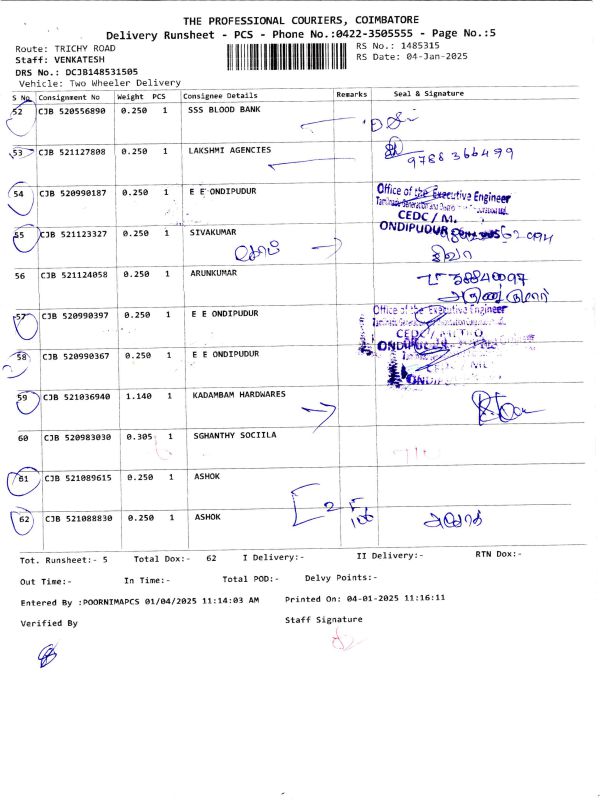 THE PROFESSIONAL COURIERS, COIMBATORE
Delivery Runsheet - PCS - Phone No.:0422-3505555 - Page No.:5
Route: TRICHY ROAD RS No.: 1485315
Staff: VENKATESH RS Date: 04-Jan-2025
DRS No.: DCJB148531505
Vehicle: Two Wheeler Delivery
S No Consignment No Weight PCS Consignee Details Remarks Seal & Signature
52 CJB 520556890 0.250 1 SSS BLOOD BANK
53 CJB 521127808 0.250 1 LAKSHMI AGENCIES
9788366499
54 CJB 520990187 0.250 1 E E ONDIPUDUR Office of the Executive Engineer
CEDC / M.
ONDIPUDUR
55 CJB 521123327 0.250 1 SIVAKUMAR
சிவா
56 CJB 521124058 0.250 1 ARUNKUMAR
அருண்குமார்
57 CJB 520990397 0.250 1 E E ONDIPUDUR Office of the Executive Engineer
CEDC / METRO
58 CJB 520990367 0.250 1 E E ONDIPUDUR
59 CJB 521036940 1.140 1 KADAMBAM HARDWARES
60 CJB 520983030 0.305 1 SGHANTHY SOCIILA
61 CJB 521089615 0.250 1 ASHOK
62 CJB 521088830 0.250 1 ASHOK அசோக்
Tot. Runsheet:- 5 Total Dox:- 62 I Delivery:- II Delivery:- RTN Dox:-
Out Time:- In Time:- Total POD:- Delvy Points:-
Entered By :POORNIMAPCS 01/04/2025 11:14:03 AM Printed On: 04-01-2025 11:16:11
Verified By Staff Signature